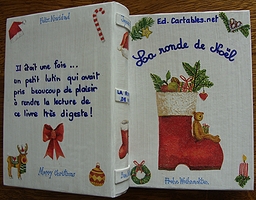 Feliz Navidad
Il était une fois ...
un petit lutin qui avait
pris beaucoup de plaisir
à rendre la lecture de
ce livre très digeste !
Merry Christmas
LA RO
DE
Ed. Cartables.net
La ronde de Noël
Frohe Weihnachten